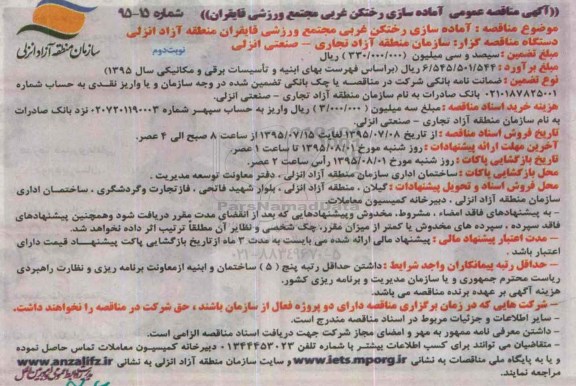 ((آگهی مناقصه عمومی آماده سازی رختکن غربی مجتمع ورزشی قایقران)) شماره ۱۵-۹۵
سازمان منطقه آزاد انزلی
نوبت دوم
موضوع مناقصه : آماده سازی رختکن غربی مجتمع ورزشی قایقران منطقه آزاد انزلی
دستگاه مناقصه گزار: سازمان منطقه آزاد تجاری – صنعتی انزلی
مبلغ تضمین : سیصد و سی میلیون (۳۳۰/۰۰۰/۰۰۰) ریال
مبلغ برآورد : ۶/۵۴۵/۵۰۱/۵۴۴ ریال (براساس فهرست بهای ابنیه و تأسیسات برقی و مکانیکی سال ۱۳۹۵)
نوع تضمین : ضمانت نامه بانکی شرکت در مناقصه یا چک بانکی تضمین شده در وجه سازمان و یا واریز نقدی به حساب شماره
۰۲۱۰۱۸۷۸۲۵۰۰۱ بانک صادرات به نام سازمان منطقه آزاد تجاری – صنعتی انزلی.
هزینه خرید اسناد مناقصه : مبلغ سه میلیون (۳/۰۰۰/۰۰۰) ریال واریز به حساب سپهر شماره ۰۲۰۷۲۰۱۱۹۰۰۰۳ نزد بانک صادرات
به نام سازمان منطقه آزاد تجاری – صنعتی انزلی.
تاریخ فروش اسناد مناقصه : از تاریخ ۱۳۹۵/۰۷/۰۸ لغایت ۱۳۹۵/۰۷/۱۵ از ساعت ۸ صبح الی ۴ عصر.
آخرین مهلت ارائه پیشنهادات : روز شنبه مورخ ۱۳۹۵/۰۸/۰۱ تا ساعت ۱ عصر.
تاریخ بازگشایی پاکات : روز شنبه مورخ ۱۳۹۵/۰۸/۰۱ رأس ساعت ۲ عصر.
محل بازگشایی پاکات : ساختمان اداری سازمان منطقه آزاد انزلی ، دفتر معاونت توسعه مدیریت .
محل فروش اسناد و تحویل پیشنهادات : گیلان ، منطقه آزاد انزلی ، بلوار شهید فاتحی ، فاز تجارت و گردشگری ، ساختمان اداری
سازمان منطقه آزاد انزلی ، دبیرخانه کمیسیون معاملات
– به پیشنهادهای فاقد امضاء ، مشروط، مخدوش و پیشنهادهایی که بعد از انقضای مدت مقرر دریافت شود وهمچنین پیشنهادهای
فاقد سپرده ، سپرده های مخدوش یا کمتر از میزان مقرر، چک شخصی و نظایر آن مطلقاً ترتیب اثر داده نخواهد شد.
– مدت اعتبار پیشنهاد مالی : پیشنهاد مالی ارائه شده می بایست به مدت ۳ ماه از تاریخ بازگشایی پاکت پیشنهاد قیمت دارای
اعتبار باشد .
– حداقل رتبه پیمانکاران واجد شرایط : داشتن حداقل رتبه پنج (۵) ساختمان و ابنیه ازمعاونت برنامه ریزی و نظارت راهبردی
ریاست محترم جمهوری و یا سازمان مدیریت و برنامه ریزی کشور.
هزینه آگهی بر عهده برنده مناقصه می باشد.
– شرکت هایی که در زمان برگزاری مناقصه دارای دو پروژه فعال از سازمان باشند ، حق شرکت در مناقصه را نخواهند داشت.
– سایر اطلاعات و جزئیات مربوط در اسناد مناقصه مندرج است.
– داشتن معرفی نامه ممهور به مهر و امضای مجاز شرکت جهت دریافت اسناد مناقصه الزامی است.
– متقاضیان می توانند برای کسب اطلاعات بیشتر با شماره تلفن ۰۱۳۴۴۴۵۳۰۲۳ دبیرخانه کمیسیون معاملات تماس حاصل نموده
و یا به پایگاه ملی مناقصات به نشانی www.iets.mporg.ir و سایت سازمان منطقه آزاد انزلی به نشانی www.anzalifz.ir
مراجعه نمایند.
ParsNamadData
۰۲۱-۸۸۳۴۹۶۷۰-۵